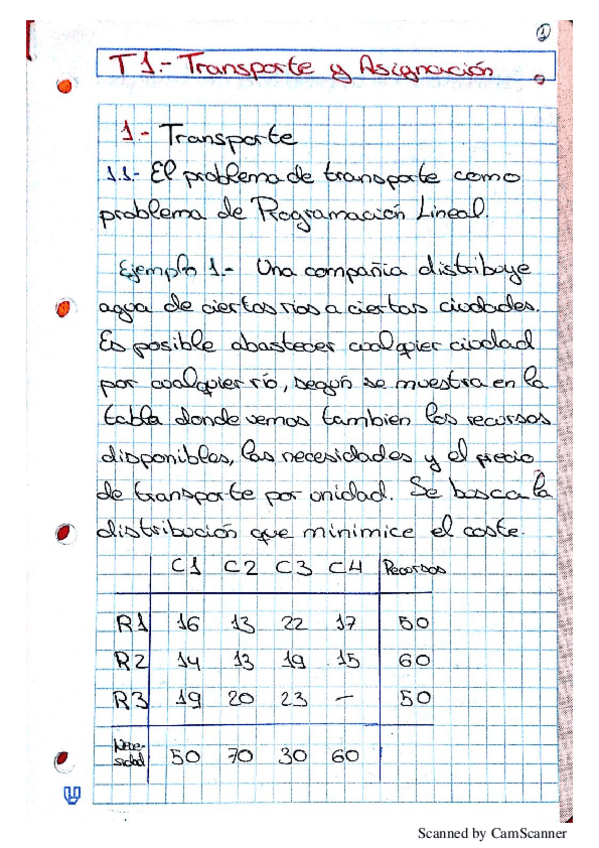 1
T1.- Transporte y Asignación
1.- Transporte
1.1.- El problema de transporte como
problema de Programación Lineal.
Ejemplo 1.- Una compañia distribuye
agua de ciertos rios a ciertas ciudades.
Es posible abastecer cualquier ciudad
por cualquier río, según se muestra en la
tabla donde vemos tambien los recursos
disponibles, las necesidades y el precio
de transporte por unidad. Se busca la
distribución que minimice el coste.
C1 C2 C3 C4 Recursos
R1 16 13 22 17 50
R2 14 13 19 15 60
R3 19 20 23 — 50
Nece-
sidad 50 70 30 60
Scanned by CamScanner